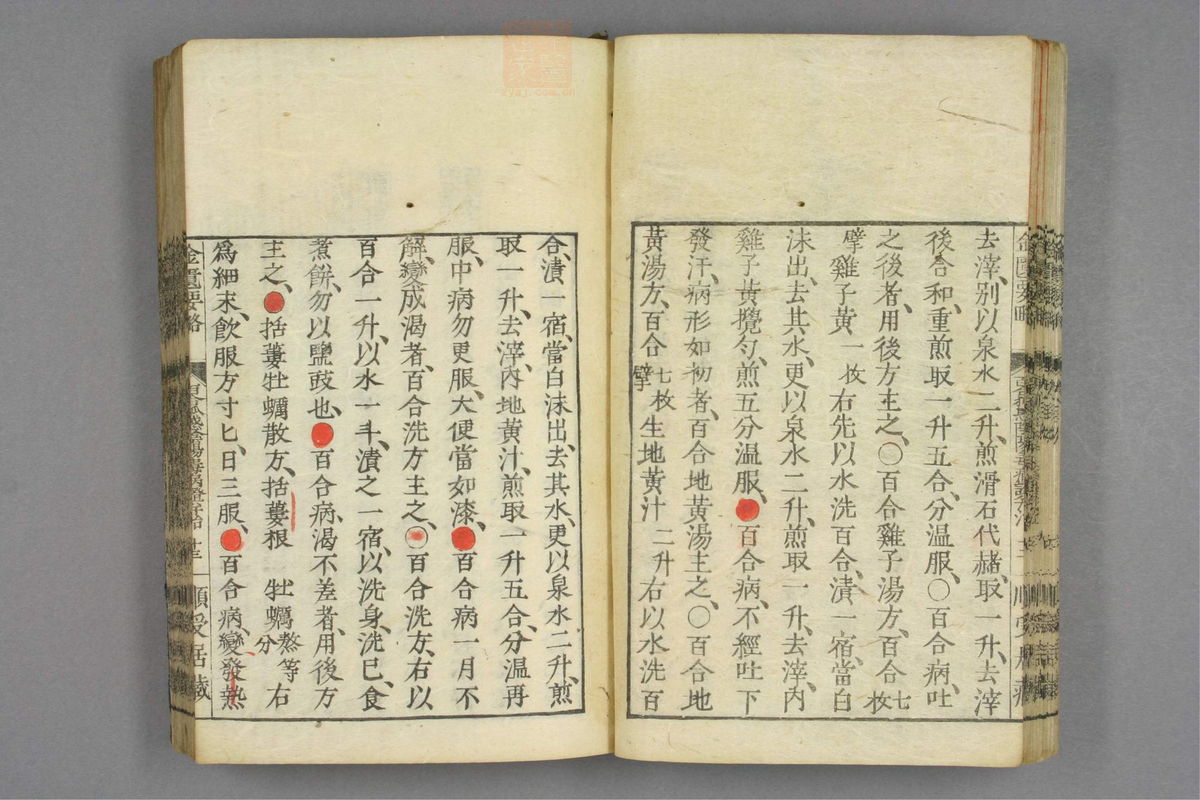 去滓、別以泉水二升、煎滑石代赭、取一升、去滓
後合和、重煎取一升五合、分温服、〇百合病、吐
之後者、用後方主之、〇百合雞子湯方、百合七枚
擘雞子黄一枚右先以水洗百合、漬一宿、當白
沫出、去其水、更以泉水二升、煎取一升、去滓、內
雞子黄攪勻、煎五分温服、●百合病、不經吐下
發汗、病形如初者、百合地黄湯主之、〇百合地
黄湯方、百合七枚擘生地黄汁一升右以水洗百
合、漬一宿、當白沫出、去其水、更以泉水二升、煎
取一升、去滓、內地黄汁、煎取一升五合、分温再
服、中病勿更服、大便當如漆、●百合病一月不
解、變成渴者、百合洗方主之、〇百合洗方、右以
百合一升、以水一斗、漬之一宿、以洗身、洗已、食
煮餅、勿以鹽豉也、●百合病、渴不差者、用後方
主之、●括蔞牡蠣散方、括蔞根 牡蠣熬等分右
爲細末、飲服方寸匕、日三服、●百合病、變發熱
金匱要略
順受居藏